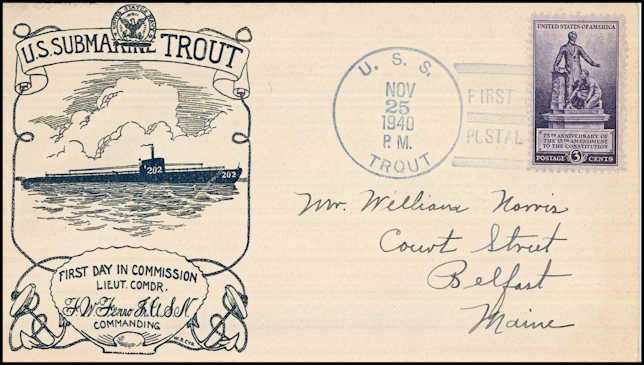 UNITED STATES NAVY
U.S. SUBMARINE TROUT
202
202
FIRST DAY IN COMMISSION
LIEUT. COMDR.
F.W. Fenno Jr. U.S.N.
COMMANDING
W.R.CYR.
U. S. S.
NOV
25
1940
P.M.
TROUT
FIRST
POSTAL
UNITED STATES OF AMERICA
75TH ANNIVERSARY OF
THE 13TH AMENDMENT
TO THE CONSTITUTION
POSTAGE 3 CENTS
Mr. William Norris
Court Street
Belfast
Maine